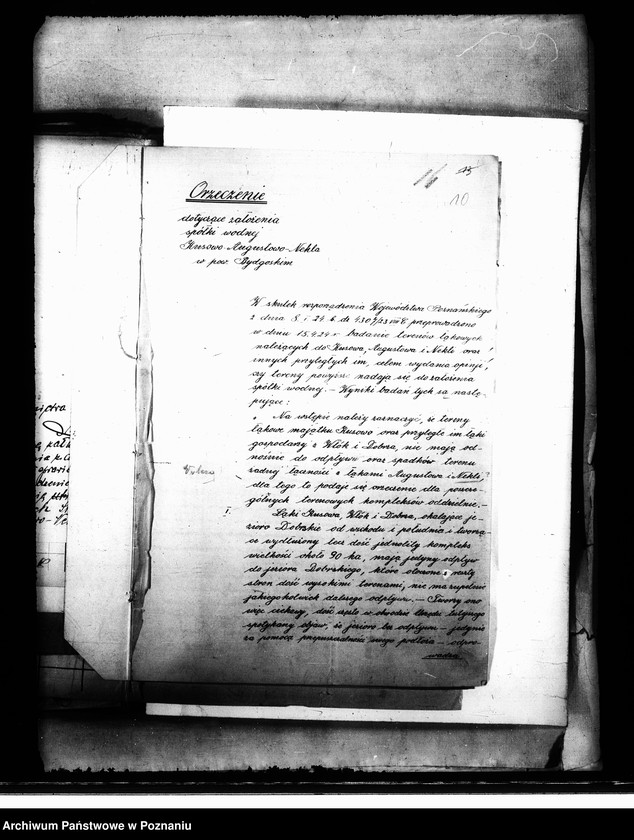 15
10
Orzeczenie
dotyczące założenia
spółki wodnej
Kusowo-Augustowo-Nekla
w pow. Bydgoskim
W skutek rozporządzenia Województwa Poznańskiego
z dnia 8. i 24. 6. przeprowadzono
w dniu 15.4.24 r. badanie terenów łąkowych
należących do Kusowa, Augustowa i Nekli oraz
innych przyległych im, celem wydania opinji,
czy tereny powyższe nadają się do założenia
spółki wodnej. – Wyniki badań tych są nastę-
pujące:
Na wstępie należy zaznaczyć, że tereny
łąkowe majątku Kusowo oraz przyległe im łąki
gospodarzy z Włók i Dobrza, nie mają od-
nośnie do odpływu oraz spadków terenu
żadnej łączności z łąkami Augustowa i Nekle,
dla tego to podaje się orzeczenie dla poszcze-
gólnych terenowych kompleksów oddzielnie.
I.
Łąki Kusowa, Włók i Dobrza, okalające je-
zioro Dobrskie od wschodu i południa i tworzą-
ce wydłużony lecz dość jednolity kompleks
wielkości około 90 ha, mają jedyny odpływ
do jeziora Dobrskiego, które otoczone z reszty
stron dość wysokimi terenami, nie ma zupełnie
jakiegokolwiek dalszego odpływu. – Tworzy ono
więc ciekawy, dość często w obrębie
spotykany objaw, że jezioro ba odpływu jedynie
za pomocą przepuszczalności swego podłoża – odpro-
wadza
Archiwum Państwowe w Poznaniu